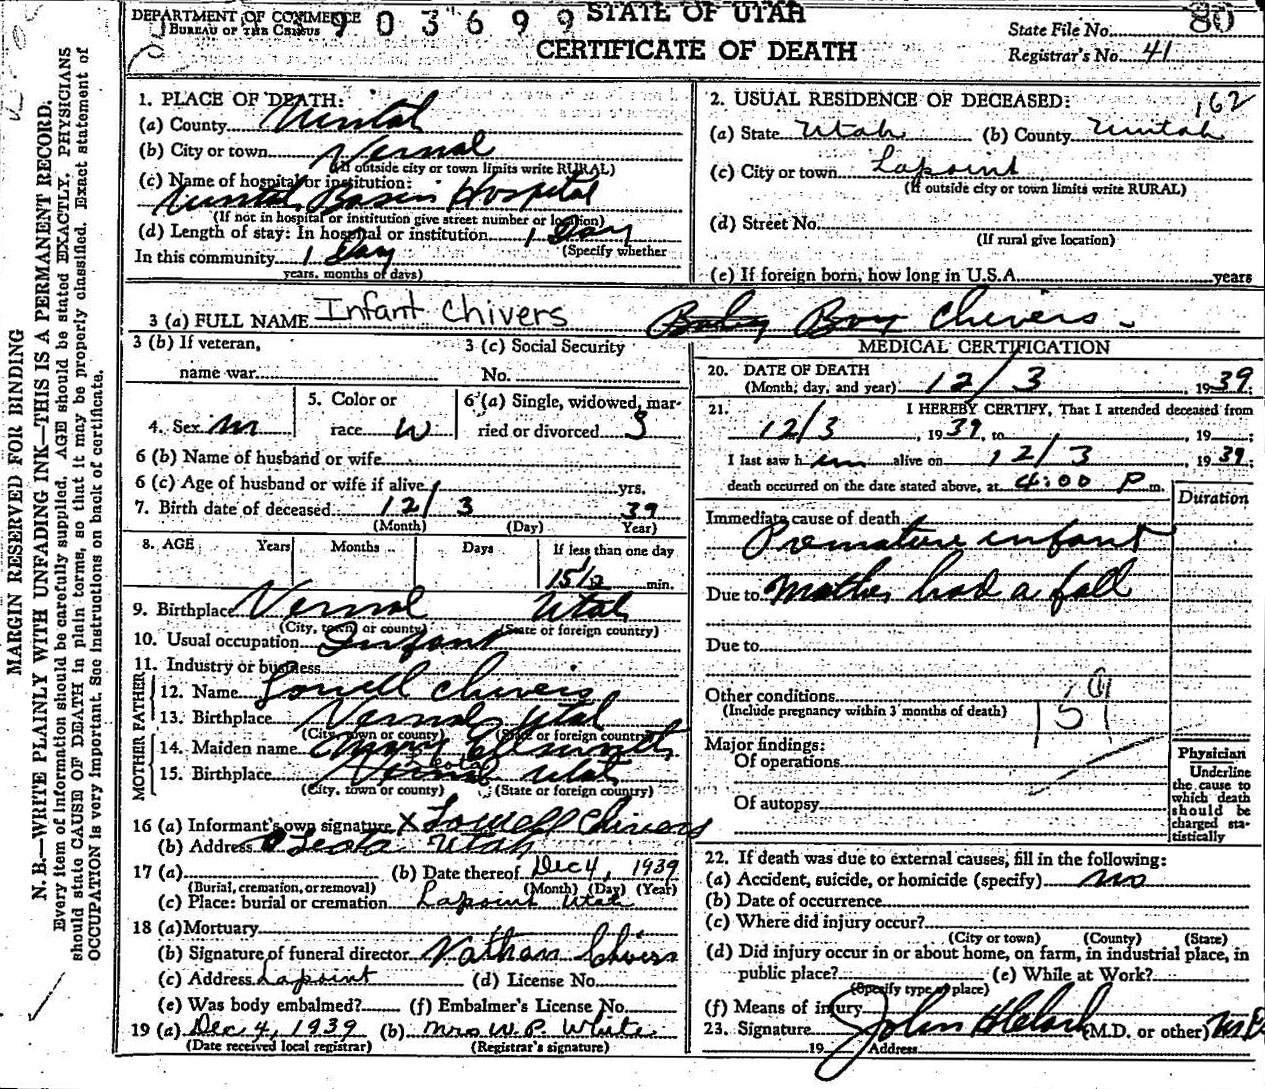 DEPARTMENT OF COMMERCE
BUREAU OF THE CENSUS
3903699
STATE OF UTAH
CERTIFICATE OF DEATH
State File No. 80
Registrar's No. 41
MARGIN RESERVED FOR BINDING
N. B.—WRITE PLAINLY WITH UNFADING INK—THIS IS A PERMANENT RECORD.
Every item of information should be carefully supplied. AGE should be stated EXACTLY. PHYSICIANS
should state CAUSE OF DEATH in plain terms, so that it may be properly classified. Exact statement of
OCCUPATION is very important. See instructions on back of certificate.
1. PLACE OF DEATH:
(a) County Uintah
(b) City or town Vernal
(If outside city or town limits write RURAL)
(c) Name of hospital or institution:
Uintah Basin Hospital
(If not in hospital or institution give street number or location)
(d) Length of stay: In hospital or institution 1 Day
(Specify whether
In this community 1 Day
years, months or days)
2. USUAL RESIDENCE OF DECEASED: 162
(a) State Utah (b) County Uintah
(c) City or town Lapoint
(If outside city or town limits write RURAL)
(d) Street No.
(If rural give location)
(e) If foreign born, how long in U.S.A. years
3 (a) FULL NAME Infant Chivers Baby Boy Chivers
3 (b) If veteran,
name war
3 (c) Social Security
No.
4. Sex M
5. Color or
race W
6 (a) Single, widowed, mar-
ried or divorced S
6 (b) Name of husband or wife
6 (c) Age of husband or wife if alive yrs.
7. Birth date of deceased 12/ 3 39
(Month) (Day) Year)
8. AGE Years Months Days If less than one day
min.
9. Birthplace Vernal Utah
(City, town or county) (State or foreign country)
10. Usual occupation Infant
11. Industry or business
FATHER
12. Name Lowell Chivers
13. Birthplace Vernal, Utah
(City, town or county) (State or foreign country)
MOTHER
14. Maiden name Mary
15. Birthplace Utah
(City, town or county) (State or foreign country)
16 (a) Informant's own signature X Lowell Chivers
(b) Address Leota Utah
17 (a) (b) Date thereof Dec 4, 1939
(Burial, cremation, or removal) (Month) (Day) (Year)
(c) Place: burial or cremation Lapoint Utah
18 (a) Mortuary
(b) Signature of funeral director Nathan Chivers
(c) Address Lapoint (d) License No.
(e) Was body embalmed? (f) Embalmer's License No.
19 (a) Dec 4, 1939 (b) Mrs W. P. White
(Date received local registrar) (Registrar's signature)
MEDICAL CERTIFICATION
20. DATE OF DEATH
(Month, day, and year) 12/3 1939.
21. I HEREBY CERTIFY, That I attended deceased from
12/3, 1939, to , 19 ;
I last saw him alive on 12/3, 1939.
death occurred on the date stated above, at 4:00 P m.
Duration
Immediate cause of death
Premature infant
Due to Mother had a fall
Due to
Other conditions
(Include pregnancy within 3 months of death)
159
Major findings:
Of operations
Of autopsy
Physician
Underline
the cause to
which death
should be
charged sta-
tistically
22. If death was due to external causes, fill in the following:
(a) Accident, suicide, or homicide (specify) no
(b) Date of occurrence
(c) Where did injury occur?
(City or town) (County) (State)
(d) Did injury occur in or about home, on farm, in industrial place, in
public place? (e) While at Work?
(Specify type of place)
(f) Means of injury
23. Signature John (M.D. or other) M.D.
19 Address